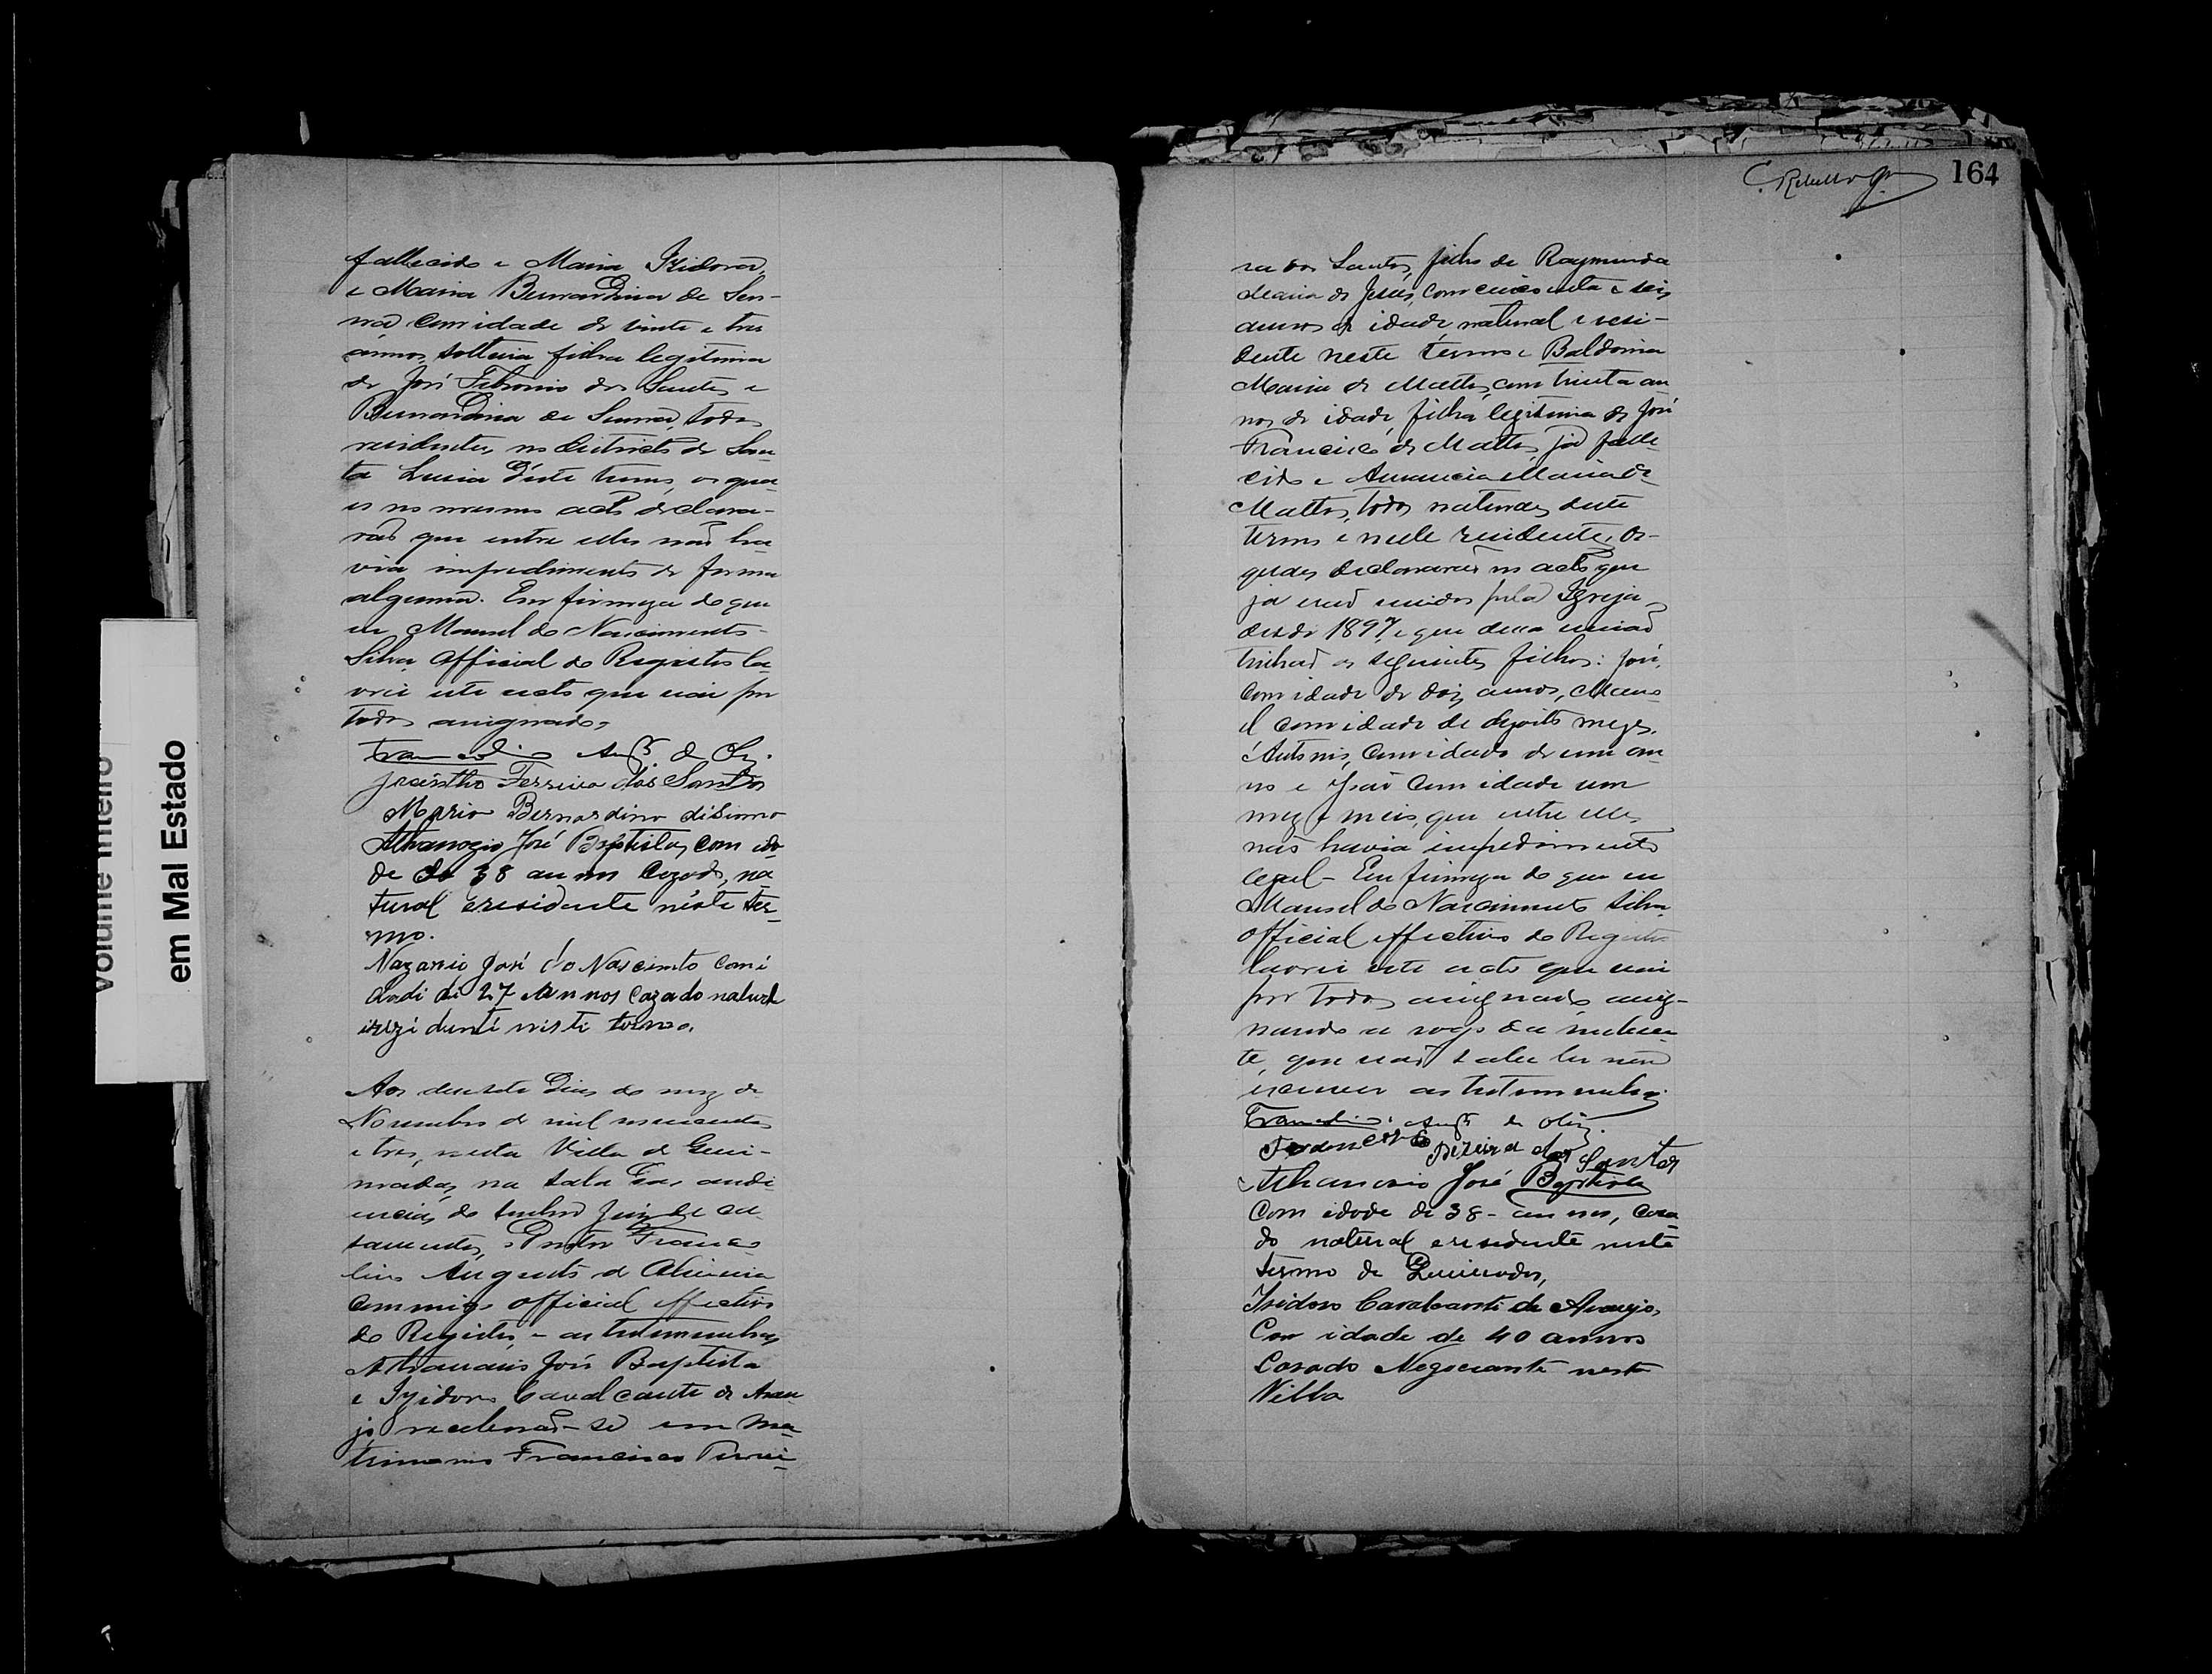 Volume Inteiro
em Mal Estado
fallecido e Maria Izidora,
e Maria Bernardina de Sen-
na com idade de vinte e tres
annos, solteira filha legitima
de José Febronio dos Santos e
Bernardina de Senna, todos
residentes no districto de San
ta Lusia d'este termo, os qua
es no mesmo acto declara-
rão que entre elles não ha
via impedimento de forma
alguma. Em firmeza do que
eu Manoel do Nascimento
Silva, Official do Registro la
vrei este acto que vai por
todos assignado,
Aug.to de
Jacintho Ferreira dos Santos
Maria Bernardina
Athanazio José Baptista, com ida
de de 38 annos Cazado, na
tural eresidente néste ter
mo.
Nazario José do Nascimto com i
dadi di 27 Annos Cazado natural
irizidenti nisti termo.
Aos dezesete dias do mez de
Novembro de mil novecentos
e tres, nesta Villa de Quei-
madas, na sala das audi
encias do senhor Juiz de ca
samentos, Doutor Franco
lino Augusto de Oliveira
commigo official effectivo
do Registro e as testemunhas
Athanasio José Baptista
e Izidoro Cavalcante de Arau
jo receberão-se em ma
trimonio Francisco Perei-
C. Rebello Jr. 164
ra dos Santos, filho de Raymunda
Maria de Jesus, com cincoenta e seis
annos de idade, natural e resi-
dente neste termo e Baldoina
Maria de Mattos, com trinta an
nos de idade, filha legitima de José
Francisco de Mattos, já falle
cido e Maria de
Mattos, todos naturaes deste
termo e nelle residentes, os
quaes declararão no acto que
já erão unidos pela Igreja
desde 1897, e que dessa união
tinhão os seguintes filhos: José,
com idade de dois annos, Mano
el com idade de dezoito mezes,
Antonio, com idade de um an
no e João com idade um
mez e mais, que entre elles
não havia impedimento
legal - Em firmeza do que eu
Manoel do Nascimento Silva,
Official effectivo do Registro
lavrei este acto que vai
por todos assignado, assig-
nando a rogo da nuben
te, que não sabe ler nem
escrever as testemunhas.
Aug.to de Oliv.
Francisco Pireira dos Santos
Athanasio José Baptista
Com idade de 38 - annos, casa
do natural eresidente neste
termo de Queimadas,
Isidoro Cavalcante de Araujo,
Com idade de 40 annos
Casado Negociante nesta
Villa